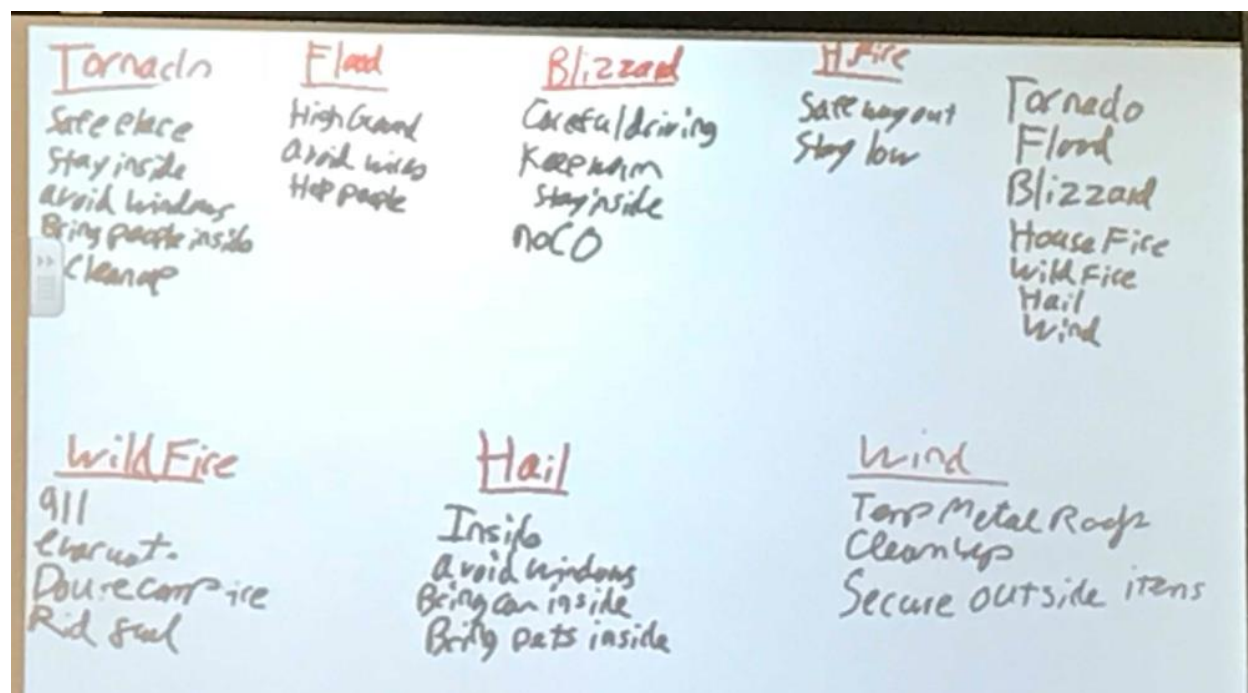 Tornado
Safe place
Stay inside
avoid windows
Bring people inside
Cleanup
Flood
High Ground
avoid wires
Help people
Blizzard
Careful driving
Keep warm
Stay inside
no CO
H Fire
Safe way out
Stay low
Tornado
Flood
Blizzard
House Fire
Wild Fire
Hail
Wind
Wild Fire
911
evacuat.
Rid fuel
Hail
Inside
avoid windows
Bring car inside
Bring pets inside
Wind
Metal Roofs
Cleanup
Secure outside items